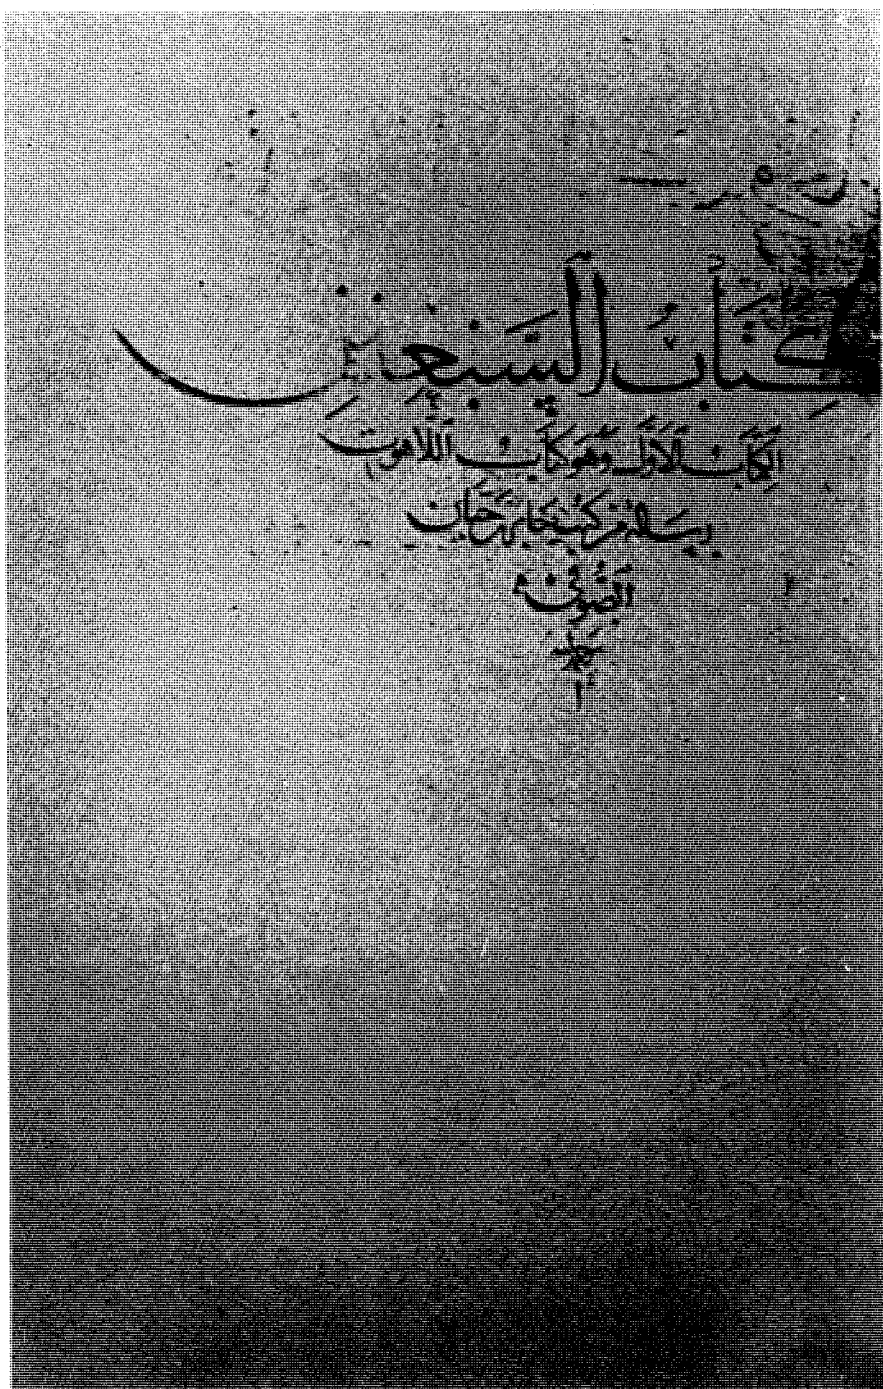 كتاب السبعين
الكتاب الأول وهو كتاب اللاهوت
من كتب جابر بن حيان
الصوفي